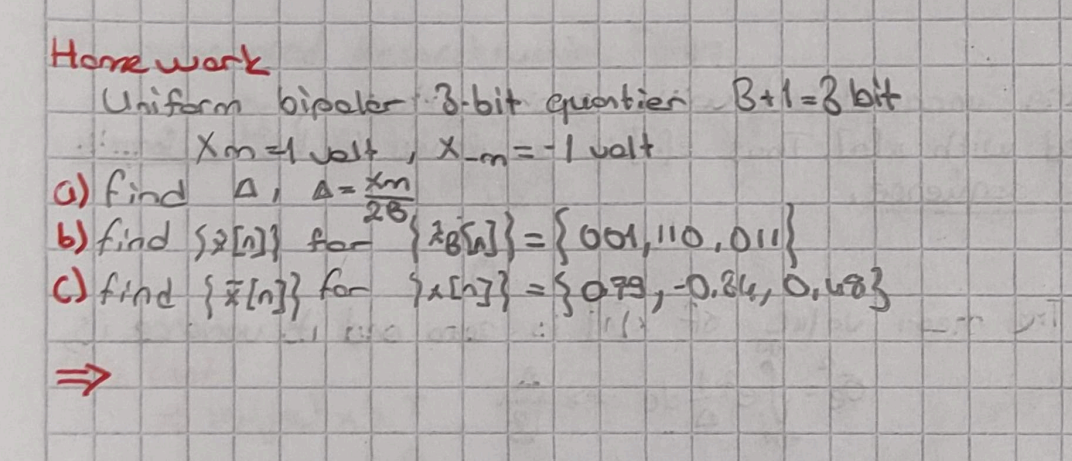 Homework
Uniform bipolar 3-bit quantier B+1=3 bit
Xm=1 volt, X-m=-1 volt
a) find Δ, Δ=xm/2B
b) find {x̂[n]} for {x̂B[n]}={001,110,011}
c) find {x̂[n]} for {x[n]}={0.79,-0.84,0,48}
⇒